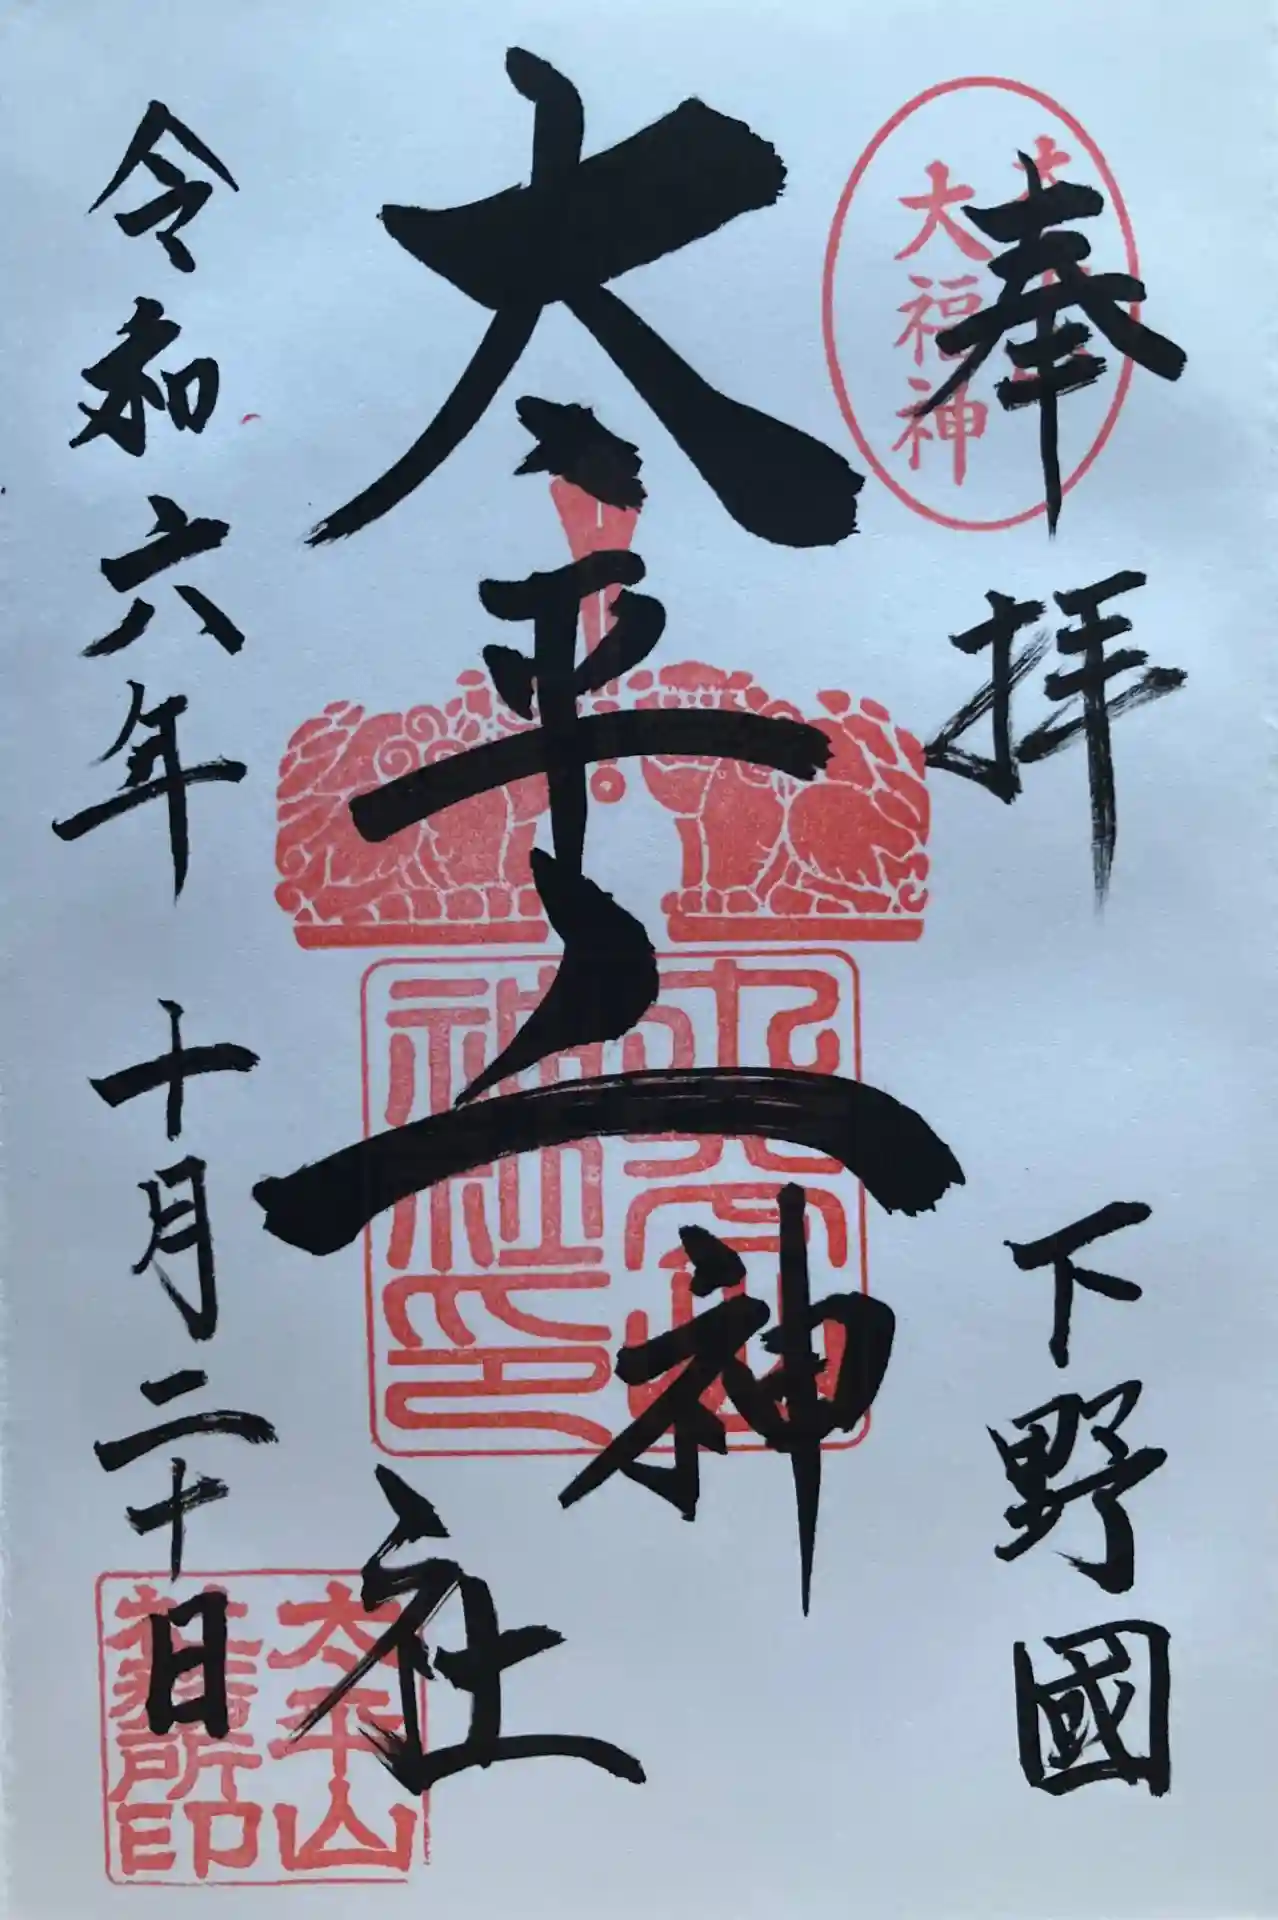 奉拝
下野國
太平山
神社
令和六年十月二十日
大福神
太平山神社印
太平山
社務所印